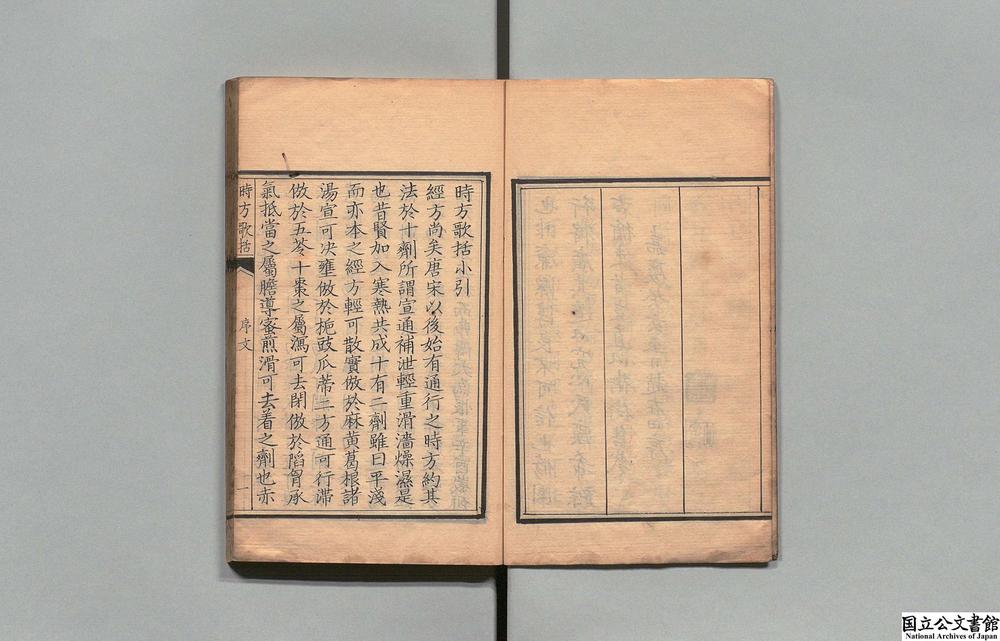 時方歌括小引
經方尚矣唐宋以後始有通行之時方約其
法於十劑所謂宣通補泄輕重滑濇燥濕是
也昔賢加入寒熱共成十有二劑雖曰平淺
而亦本之經方輕可散實倣於麻黄葛根諸
湯宣可决壅倣於梔豉瓜蒂二方通可行滯
倣於五苓十棗之屬瀉可去閉倣於陷胷承
氣抵當之屬膽導蜜煎滑可去着之劑也赤
時方歌括
序文
一
国立公文書館
National Archives of Japan